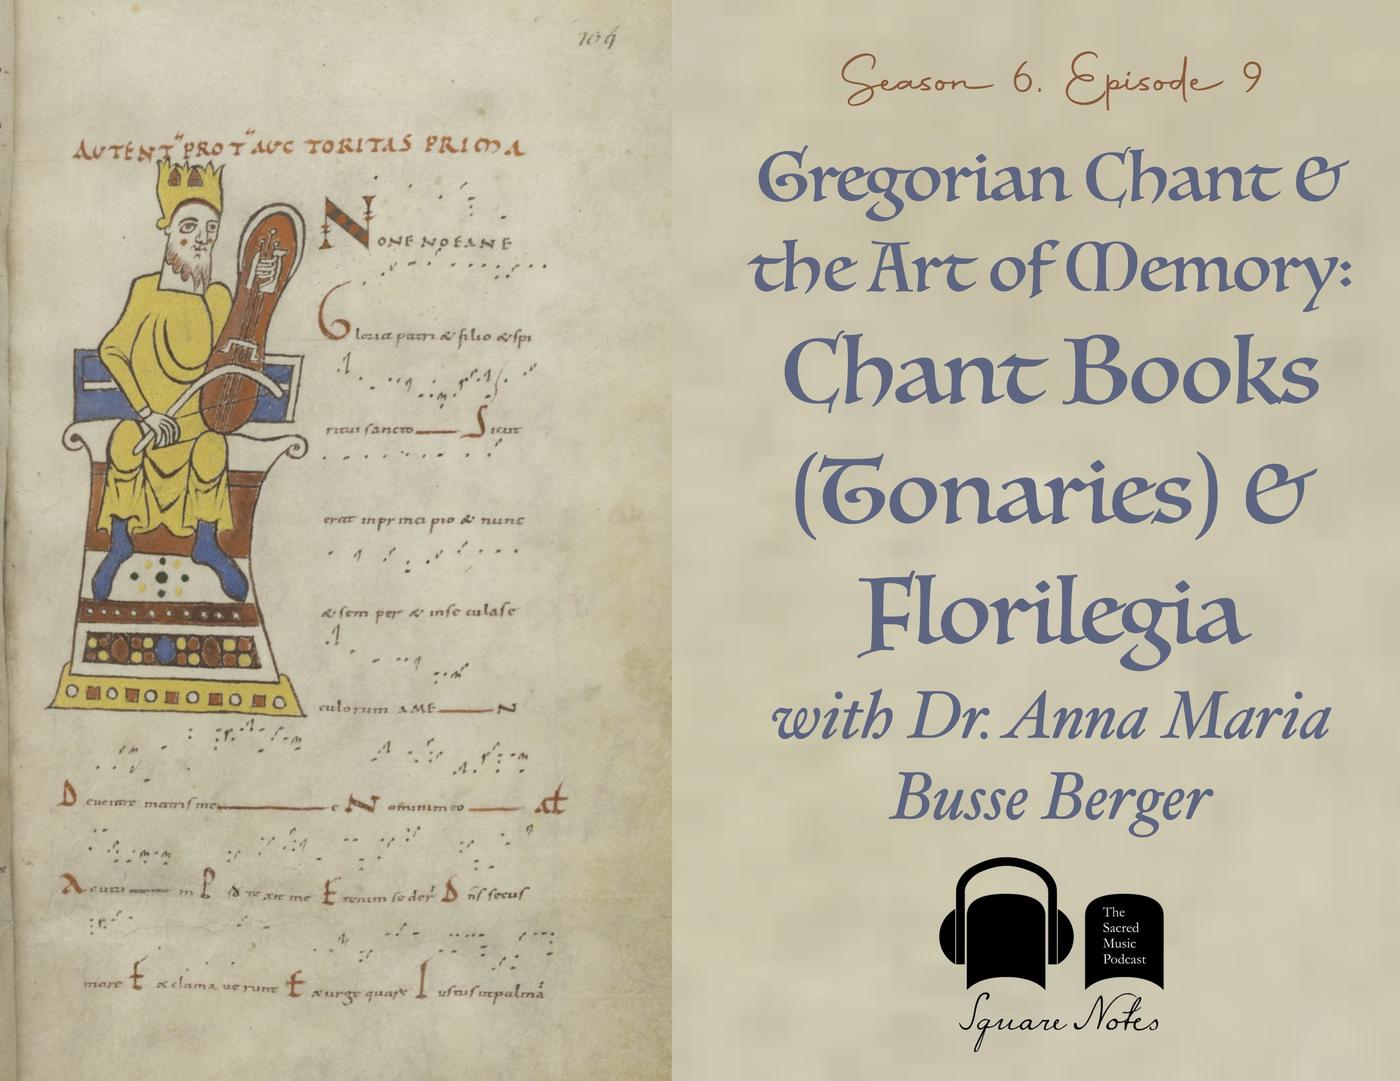 104
AUTENT PROT AUCTORITAS PRIMA
NONE NOEANE
Gloria patri & filio & spi
ritui sancto Sicut
erat inprincipio & nunc
& semper & inse culase
culorum AMEN
De uentre matris me e N ominum eo
mare E xclama uerunt E xurge quare I ustus utpalma
Season 6, Episode 9
Gregorian Chant &
the Art of Memory:
Chant Books
(Tonaries) &
Florilegia
with Dr. Anna Maria
Busse Berger
The
Sacred
Music
Podcast
Square Notes